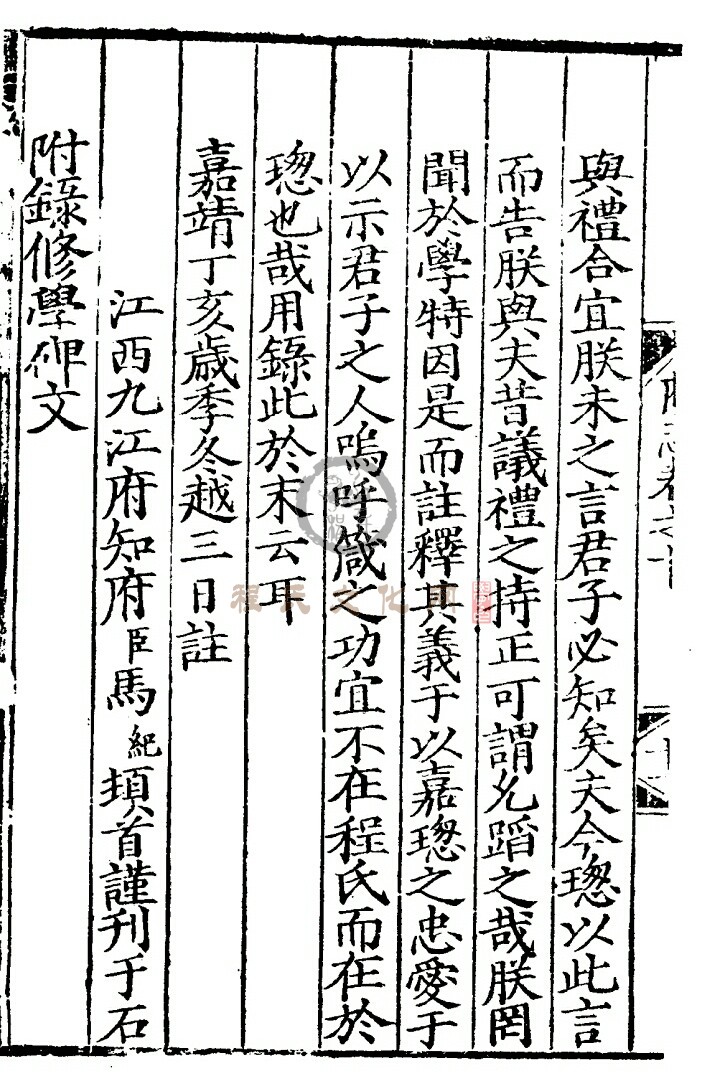 與禮合宜朕未之言君子必知矣夫今璁以此言
而告朕與夫昔議禮之持正可謂允蹈之哉朕罔
聞於學特因是而註釋其義于以嘉璁之忠愛于
以示君子之人嗚呼箴之功宜不在程氏而在於
璁也哉用錄此於末云耳
嘉靖丁亥歲季冬越三日註
江西九江府知府臣馬紀頓首謹刊于石
附錄修學碑文
程氏文化网